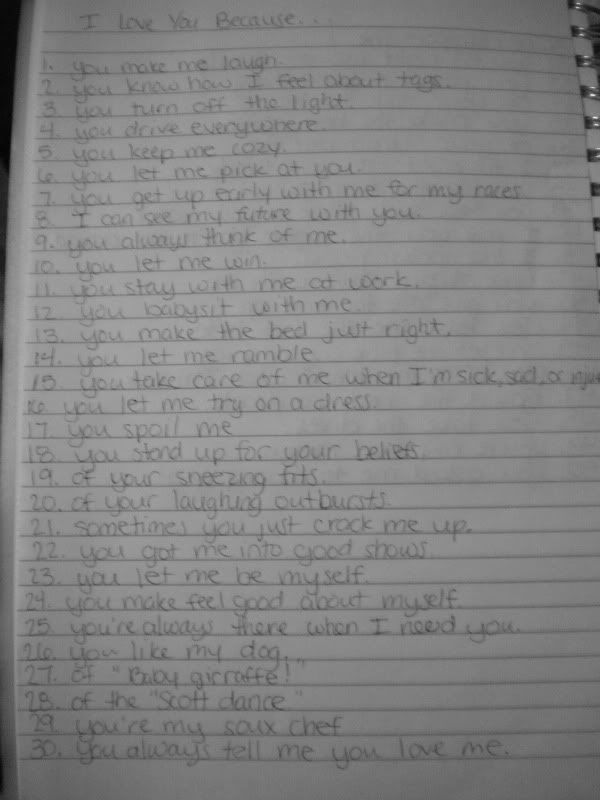 I Love You Because...
1. you make me laugh.
2. you know how I feel about tags.
3. you turn off the light.
4. you drive everywhere.
5. you keep me cozy.
6. you let me pick at you.
7. you get up early with me for my races.
8. I can see my future with you.
9. you always think of me.
10. you let me win.
11. you stay with me at work.
12. you babysit with me.
13. you make the bed just right.
14. you let me ramble
15. you take care of me when I'm sick, sad, or
16. you let me try on a dress.
17. you spoil me
18. you stand up for your beliefs.
19. of your sneezing fits.
20. of your laughing outbursts.
21. sometimes you just crack me up.
22. you got me into good shows.
23. you let me be myself.
24. you make feel good about myself.
25. you're always there when I need you.
26. you like my dog.
27. of "Baby girraffe!"
28. of the "Scott dance"
29. you're my soux chef
30. you always tell me you love me.